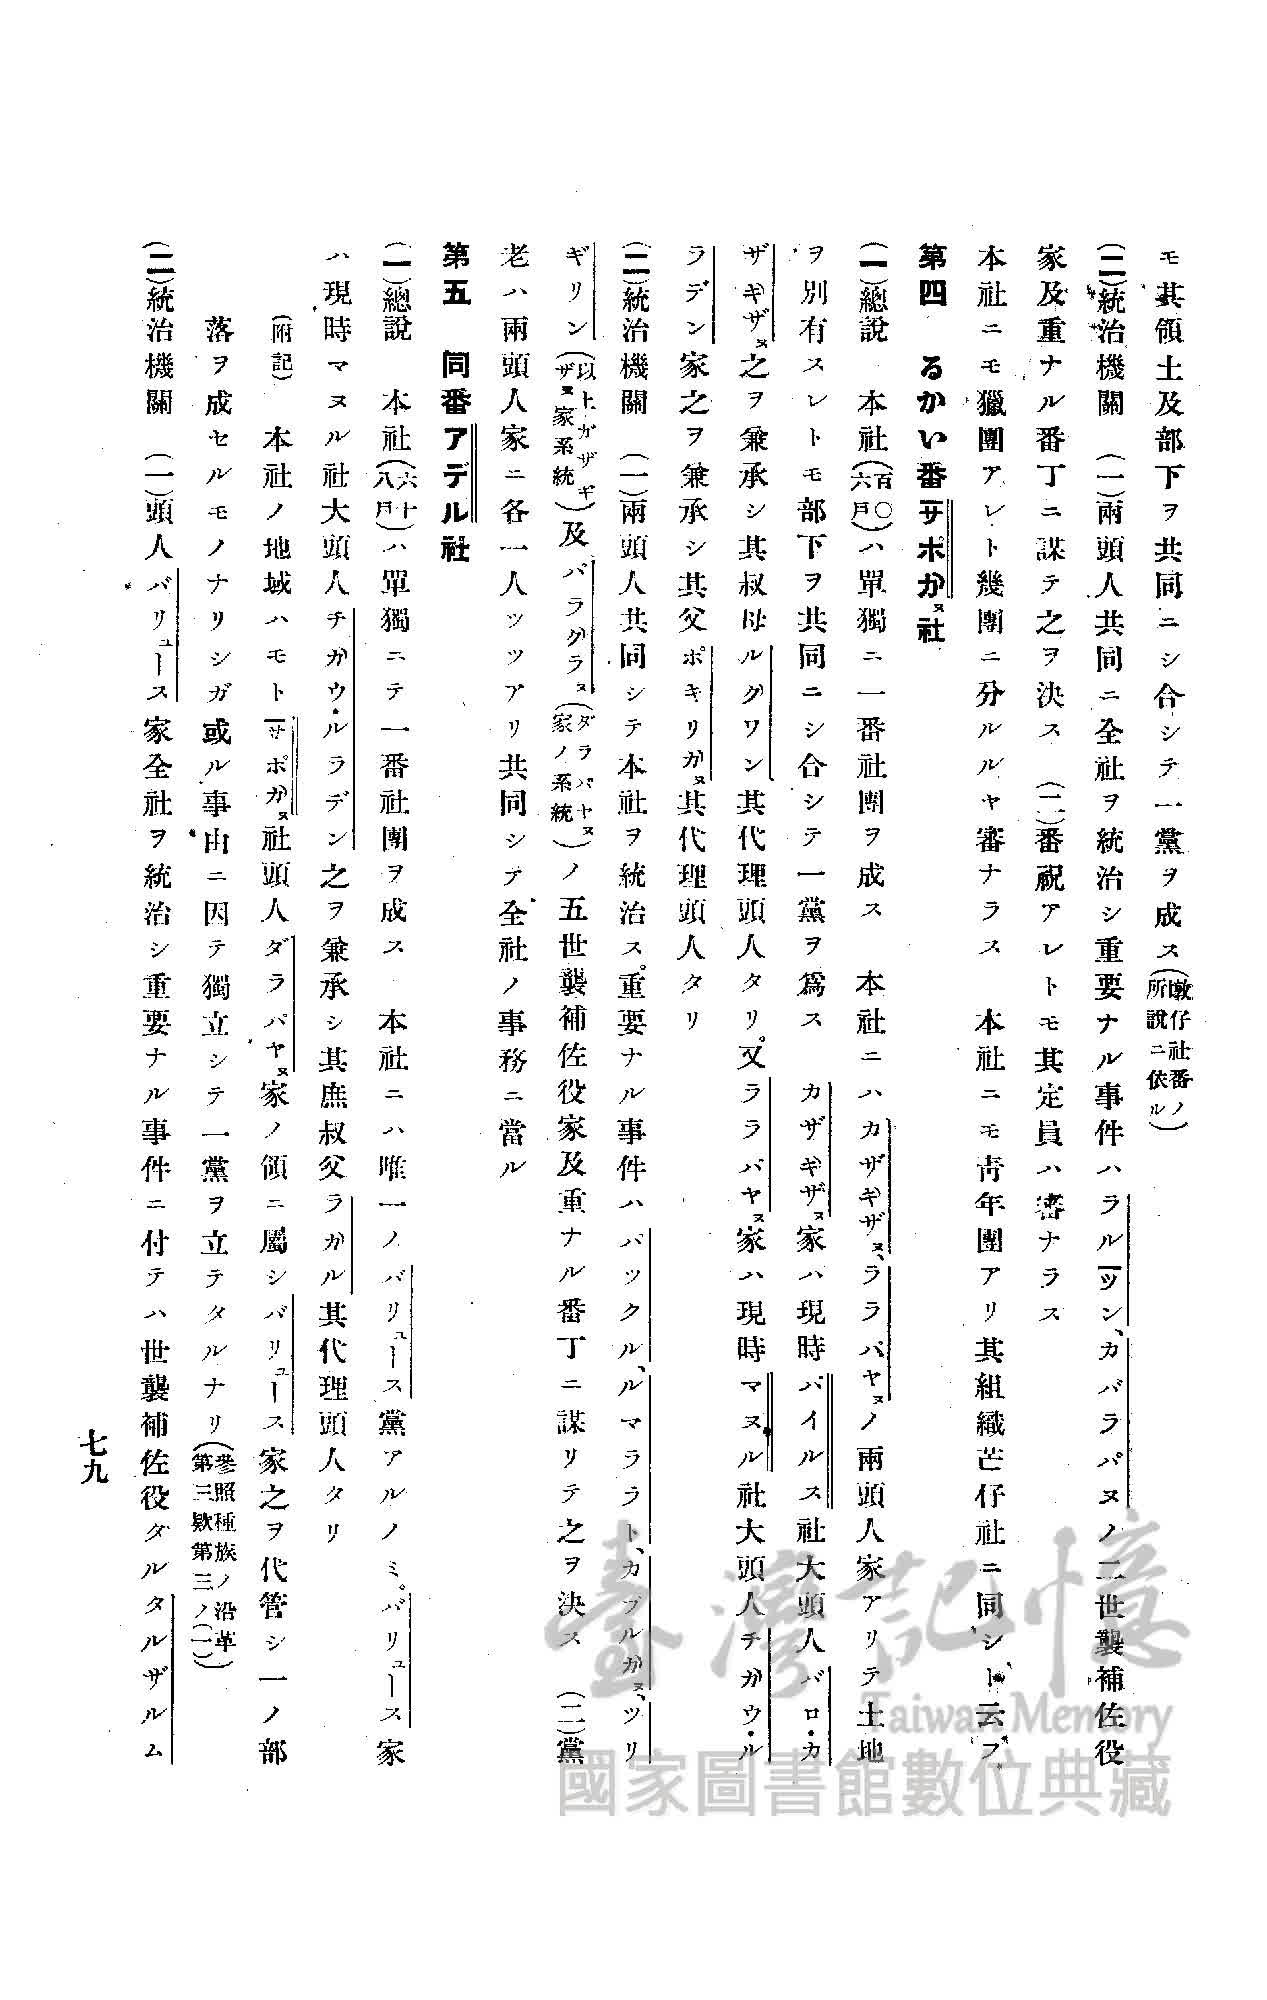 モ其領土及部下ヲ共同ニシ合シテ一黨ヲ成ス(墩仔社番ノ所說ニ依ル)
(二)統治機關 (一)兩頭人共同ニ全社ヲ統治シ重要ナル事件ハラルーツン、カバラバヌノ二世襲補佐役
家及重ナル番丁ニ謀テ之ヲ決ス (二)番祝アレトモ其定員ハ審ナラス
本社ニモ獵團アレト幾團ニ分ルルヤ審ナラス 本社ニモ靑年團アリ其組織芒仔社ニ同シト云フ
第四 るかい番サポガヌ社
(一)總說 本社(百〇六戶)ハ單獨ニ一番社團ヲ成ス 本社ニハカザギザヌ、ララバヤヌノ兩頭人家アリテ土地
ヲ別有スレトモ部下ヲ共同ニシ合シテ一黨ヲ爲ス カザギザヌ家ハ現時パイルス社大頭人バロ・カ
ザギザヌ之ヲ兼承シ其叔母ルグワン其代理頭人タリ。又ララバヤヌ家ハ現時マヌル社大頭人チガウ・ル
ラデン家之ヲ兼承シ其父ポキリガヌ其代理頭人タリ
(二)統治機關 (一)兩頭人共同シテ本社ヲ統治ス。重要ナル事件ハパツクル、ルマララト、カブルガヌ、ツリ
ギリン(以上ガザギザヌ家系統)及バラグラヌ(ダラバヤヌ家ノ系統)ノ五世襲補佐役家及重ナル番丁ニ謀リテ之ヲ決ス (二)黨
老ハ兩頭人家ニ各一人ツツアリ共同シテ全社ノ事務ニ當ル
第五 同番アデル社
(一)總說 本社(六十八戶)ハ單獨ニテ一番社團ヲ成ス 本社ニハ唯一ノバリュース黨アルノミ。バリュース家
ハ現時マヌル社大頭人チガウ・ルラデン之ヲ兼承シ其庶叔父ラガル其代理頭人タリ
(附記) 本社ノ地域ハモトサポガヌ社頭人ダラバヤヌ家ノ領ニ屬シバリュース家之ヲ代管シ一ノ部
落ヲ成セルモノナリシガ或ル事由ニ因テ獨立シテ一黨ヲ立テタルナリ(參照種族ノ沿革第三欵第三ノ(一))
(二)統治機關 (一)頭人バリュース家全社ヲ統治シ重要ナル事件ニ付テハ世襲補佐役ダルタルザルム
七九
臺灣記憶
Taiwan Memory
國家圖書館數位典藏